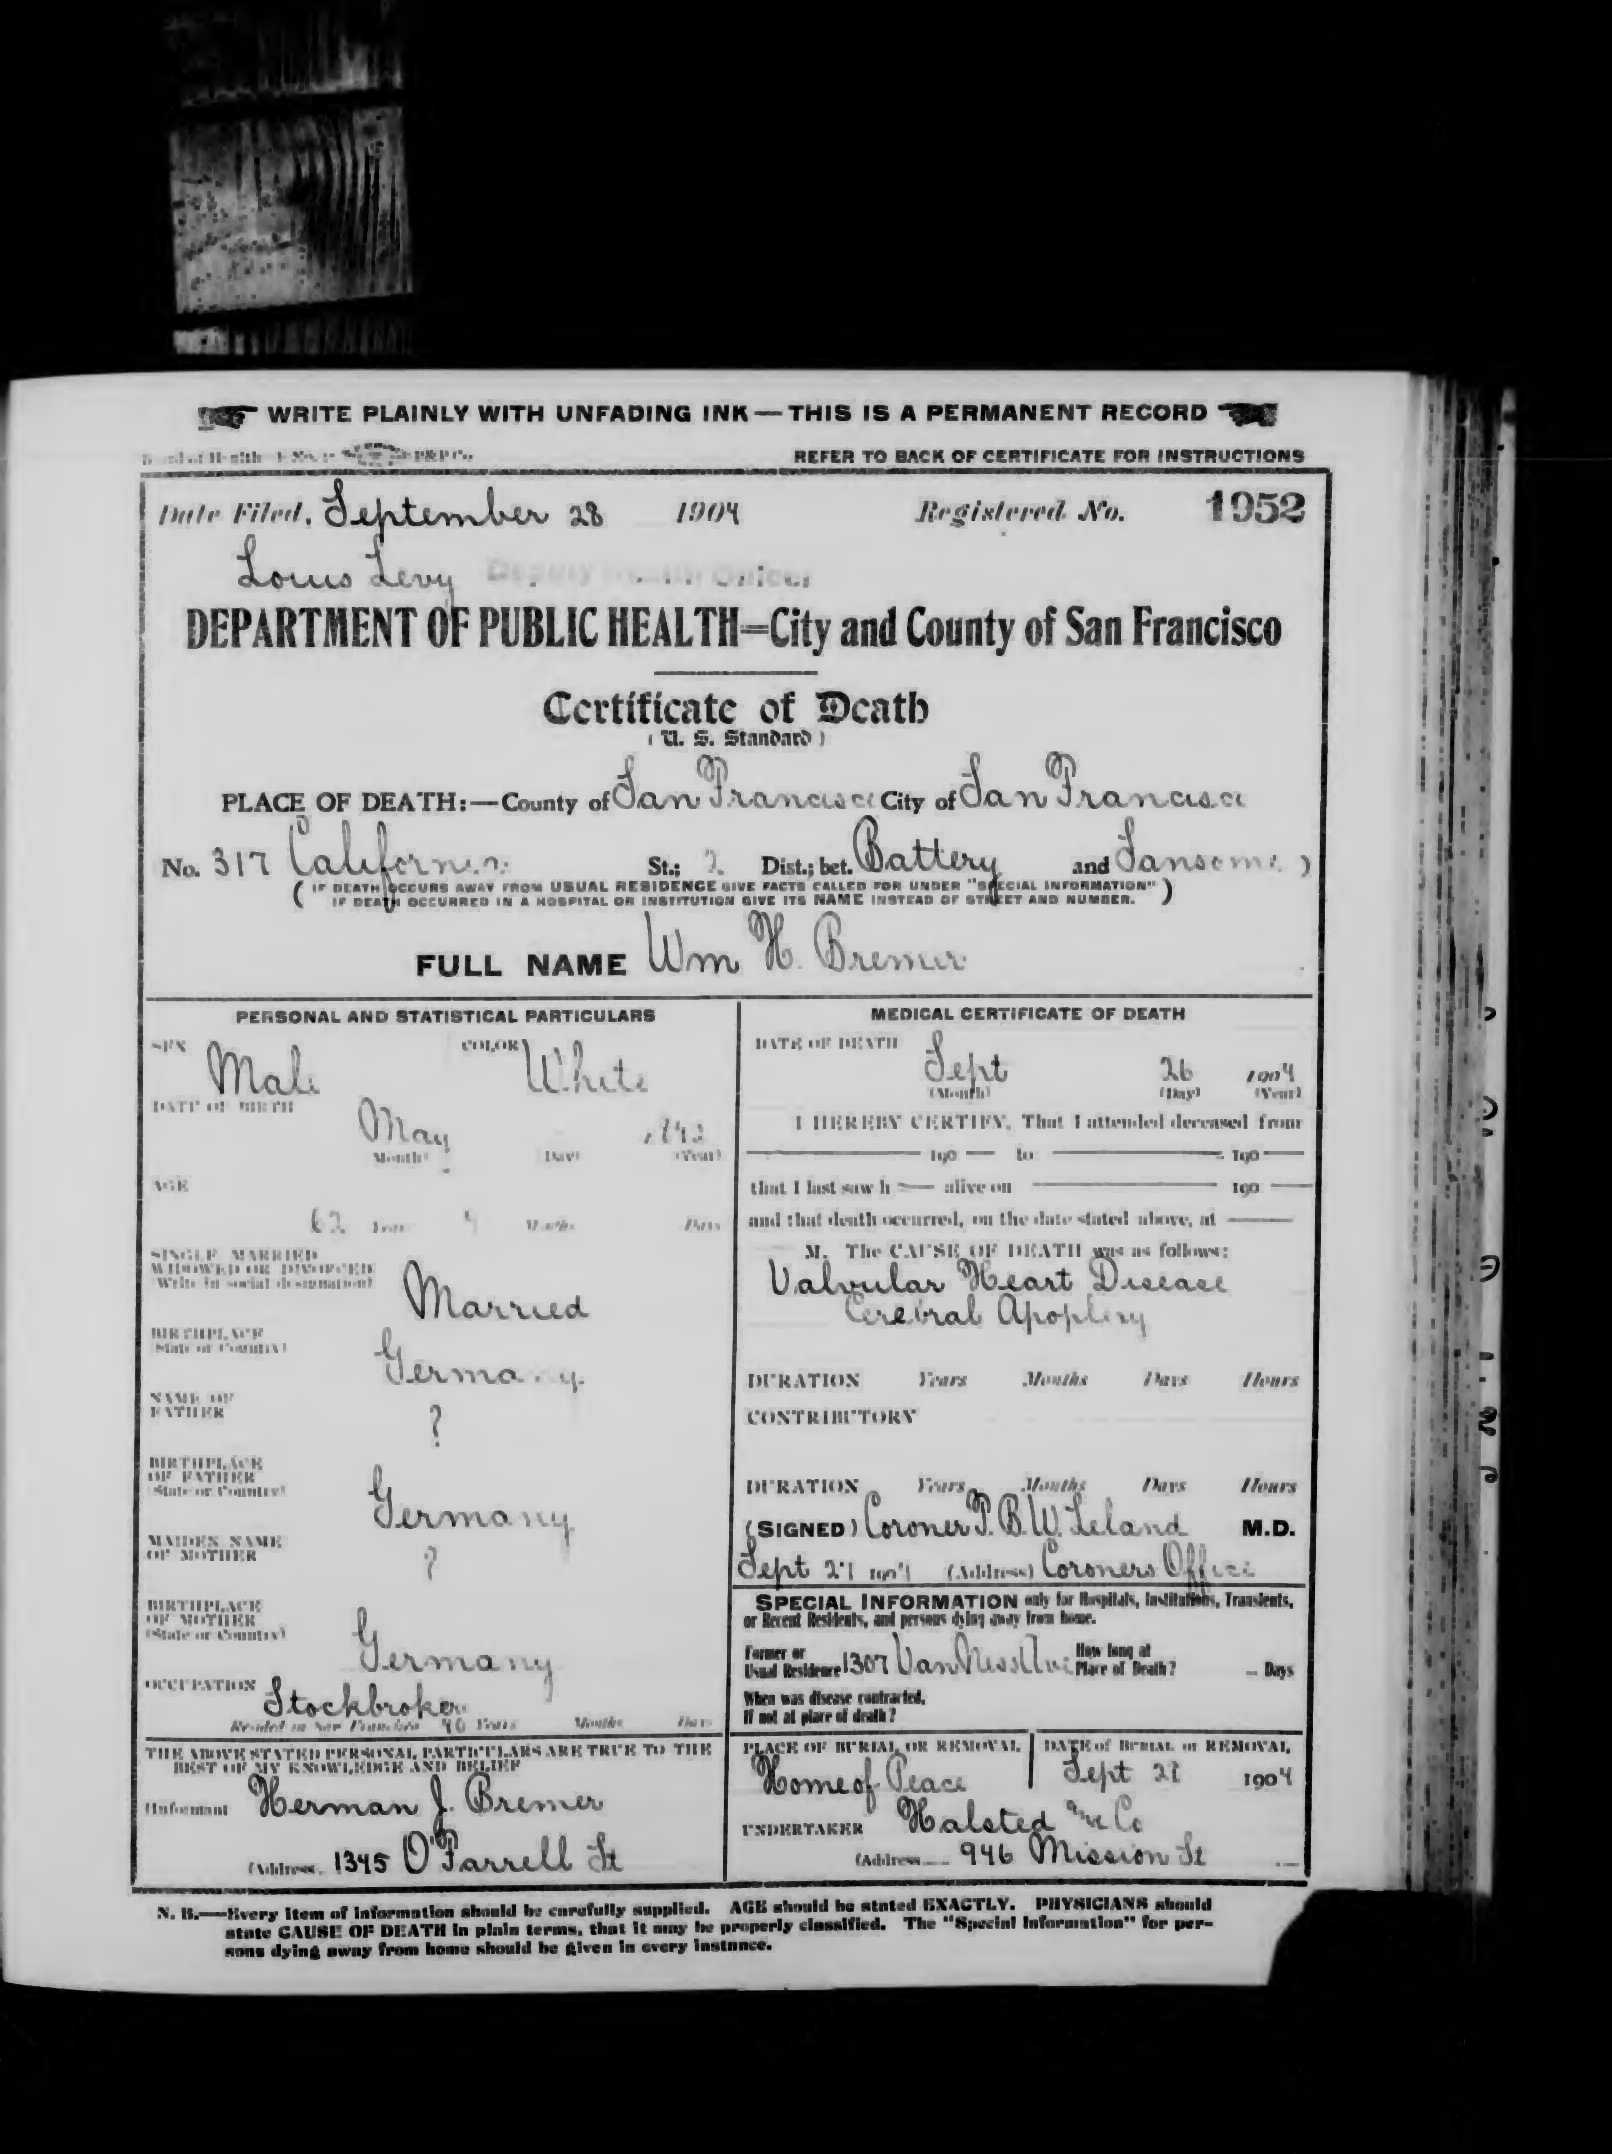 WRITE PLAINLY WITH UNFADING INK — THIS IS A PERMANENT RECORD
REFER TO BACK OF CERTIFICATE FOR INSTRUCTIONS
Date Filed, September 28 1904 Registered No. 1952
Louis Levy Deputy Health Officer
DEPARTMENT OF PUBLIC HEALTH=City and County of San Francisco
Certificate of Death
( U. S. Standard )
PLACE OF DEATH:—County of San Francisco City of San Francisco
No. 317 California St.; 2 Dist.; bet. Battery and Sansome )
( IF DEATH OCCURS AWAY FROM USUAL RESIDENCE GIVE FACTS CALLED FOR UNDER "SPECIAL INFORMATION" )
IF DEATH OCCURRED IN A HOSPITAL OR INSTITUTION GIVE ITS NAME INSTEAD OF STREET AND NUMBER.
FULL NAME Wm H. Bremer
PERSONAL AND STATISTICAL PARTICULARS
SEX Male COLOR White
DATE OF BIRTH
May 1842
(Month) (Day) (Year)
AGE
62 Years 4 Months Days
SINGLE MARRIED
WIDOWED OR DIVORCED
(Write in social designation)
Married
BIRTHPLACE
(State or Country)
Germany
NAME OF
FATHER
?
BIRTHPLACE
OF FATHER
(State or Country)
Germany
MAIDEN NAME
OF MOTHER
?
BIRTHPLACE
OF MOTHER
(State or Country)
Germany
OCCUPATION Stockbroker
Resided in San Francisco 40 Years Months Days
THE ABOVE STATED PERSONAL PARTICULARS ARE TRUE TO THE
BEST OF MY KNOWLEDGE AND BELIEF
(Informant Herman J. Bremer
(Address 1345 O'Farrell St
MEDICAL CERTIFICATE OF DEATH
DATE OF DEATH
Sept 26 1904
(Month) (Day) (Year)
I HEREBY CERTIFY, That I attended deceased from
190 to 190
that I last saw h alive on 190
and that death occurred, on the date stated above, at
M. The CAUSE OF DEATH was as follows:
Valvular Heart Disease
Cerebral Apoplexy
DURATION Years Months Days Hours
CONTRIBUTORY
DURATION Years Months Days Hours
(SIGNED) Coroner T. B. W. Leland M.D.
Sept 27 1904 (Address) Coroners Office
SPECIAL INFORMATION only for Hospitals, Institutions, Transients,
or Recent Residents, and persons dying away from home.
Former or
Usual Residence 1307 Van Ness Ave
How long at
Place of Death? Days
When was disease contracted,
If not at place of death?
PLACE OF BURIAL OR REMOVAL
Home of Peace
DATE of BURIAL or REMOVAL
Sept 28 1904
UNDERTAKER Halsted & Co
(Address 946 Mission St
N. B.—Every item of information should be carefully supplied. AGE should be stated EXACTLY. PHYSICIANS should
state CAUSE OF DEATH in plain terms, that it may be properly classified. The "Special Information" for per-
sons dying away from home should be given in every instance.